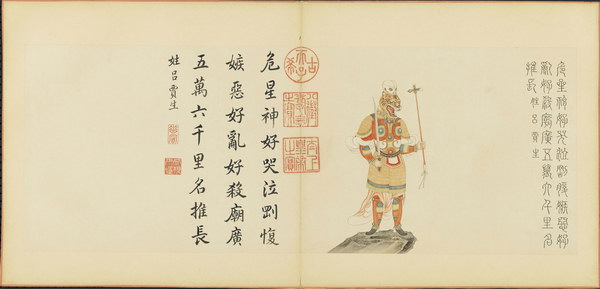 危星神好哭泣剛愎嫉惡好
亂好殺廟廣五萬六千里名
推長 姓呂賈生
古希天子
危星神好哭泣剛愎
嫉惡好亂好殺廟廣
五萬六千里名推長
姓呂賈生